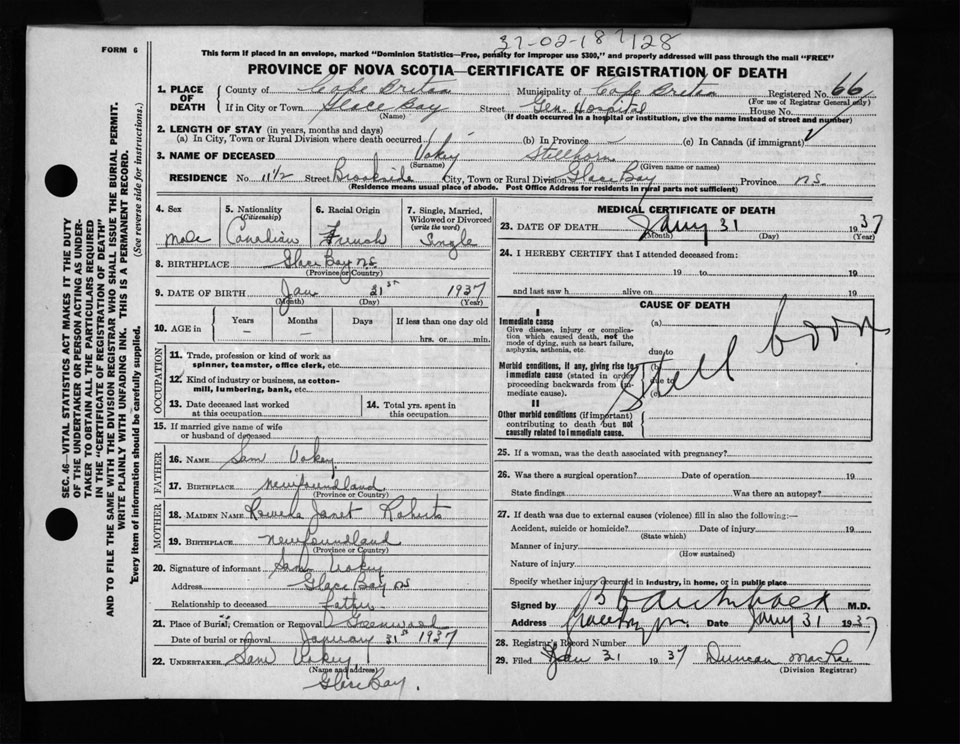 FORM 6
37-02-18 7128
This form if placed in an envelope, marked "Dominion Statistics—Free, penalty for improper use $300," and properly addressed will pass through the mail "FREE"
PROVINCE OF NOVA SCOTIA—CERTIFICATE OF REGISTRATION OF DEATH
SEC. 46—VITAL STATISTICS ACT MAKES IT THE DUTY
OF THE UNDERTAKER OR PERSON ACTING AS UNDER-
TAKER TO OBTAIN ALL THE PARTICULARS REQUIRED
IN THE "CERTIFICATE OF REGISTRATION OF DEATH"
AND TO FILE THE SAME WITH THE DIVISION REGISTRAR WHO SHALL ISSUE THE BURIAL PERMIT.
WRITE PLAINLY WITH UNFADING INK. THIS IS A PERMANENT RECORD.
Every item of information should be carefully supplied. (See reverse side for instructions.)
1. PLACE OF DEATH County of Cape Breton Municipality of Cape Breton Registered No. 66
(For use of Registrar General only)
If in City or Town Glace Bay Street Gen. Hospital House No.
(Name) (If death occurred in a hospital or institution, give the name instead of street and number)
2. LENGTH OF STAY (in years, months and days)
(a) In City, Town or Rural Division where death occurred (b) In Province (c) In Canada (if immigrant)
3. NAME OF DECEASED Vokey Stillborn
(Surname) (Given name or names)
RESIDENCE No. 11½ Street Brookside City, Town or Rural Division Glace Bay Province N.S.
(Residence means usual place of abode. Post Office Address for residents in rural parts not sufficient)
4. Sex 5. Nationality (Citizenship) 6. Racial Origin 7. Single, Married, Widowed or Divorced (write the word)
Male Canadian French Single
8. BIRTHPLACE Glace Bay N.S.
(Province or Country)
9. DATE OF BIRTH Jan 31st 1937
(Month) (Day) (Year)
10. AGE in Years Months Days If less than one day old
hrs. or min.
OCCUPATION
11. Trade, profession or kind of work as spinner, teamster, office clerk, etc.
12. Kind of industry or business, as cotton-mill, lumbering, bank, etc.
13. Date deceased last worked at this occupation
14. Total yrs. spent in this occupation
15. If married give name of wife or husband of deceased
FATHER
16. NAME Sam Vokey
17. BIRTHPLACE Newfoundland
(Province or Country)
MOTHER
18. MAIDEN NAME Rowena Janet Roberts
19. BIRTHPLACE Newfoundland
(Province or Country)
20. Signature of informant Sam Vokey
Address Glace Bay NS
Relationship to deceased Father
21. Place of Burial, Cremation or Removal Greenwood
Date of burial or removal January 31st 1937
22. UNDERTAKER Sam Vokey
(Name and address)
Glace Bay.
MEDICAL CERTIFICATE OF DEATH
23. DATE OF DEATH Jany 31 1937
(Month) (Day) (Year)
24. I HEREBY CERTIFY that I attended deceased from:
19 to 19
and last saw h alive on 19
CAUSE OF DEATH
I
Immediate cause
Give disease, injury or complica-
tion which caused death, not the
mode of dying, such as heart failure,
asphyxia, asthenia, etc.
(a)
due to
Morbid conditions, if any, giving rise to
immediate cause (stated in order
proceeding backwards from im-
mediate cause).
(b)
due to
(c)
Still born
II
Other morbid conditions (if important)
contributing to death but not
causally related to immediate cause.
25. If a woman, was the death associated with pregnancy?
26. Was there a surgical operation? Date of operation 19
State findings Was there an autopsy?
27. If death was due to external causes (violence) fill in also the following:—
Accident, suicide or homicide? Date of injury 19
(State which)
Manner of injury
(How sustained)
Nature of injury
Specify whether injury occurred in industry, in home, or in public place
Signed by M.D.
Address Date Jany 31 1937
28. Registrar's Record Number
29. Filed Jan 31 1937 Duncan MacRae
(Division Registrar)